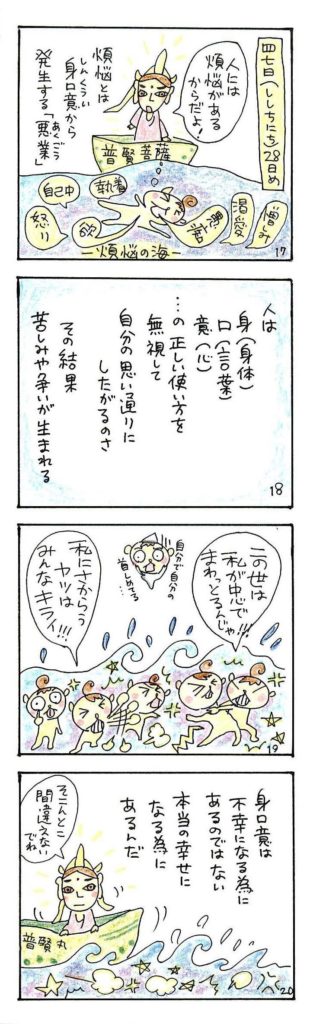 四七日(ししちにち)28日め
人には
煩悩がある
からだよ!
煩悩とは
しんくうい
身口意から
あくごう
発生する「悪業」
普賢菩薩
憎み
渇愛
欲
執着
自己中
怒り
―煩悩の海―
17
人は
身(身体)
口(言葉)
意(心)
…の正しい使い方を
無視して
自分の思い通りに
したがるのさ
その結果
苦しみや争いが生まれる
18
この世は
私が中心で
まわっとるんじゃ!!!
自分で自分の
首しめてる…
私にさからう
ヤツは
みんなキライ!!!
19
身口意は
不幸になる為に
あるのではない
本当の幸せに
なる為に
あるんだ
そこんとこ
間違えない
でね
普賢丸
20